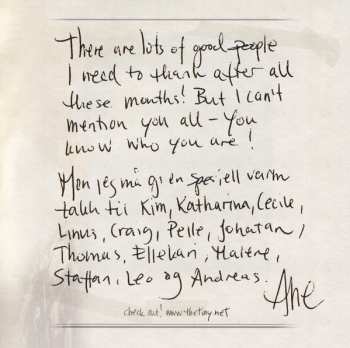 There are lots of good people
I need to thank after all
these months! But I can't
mention you all - You
know who you are!
Men jeg må gi en spesiell varm
takk til Kim, Katharina, Cecile,
Linus, Craig, Pelle, Johatan,
Thomas, Ellekari, Malene,
Staffan, Leo og Andreas.
Ane
check out! www.thetiny.net